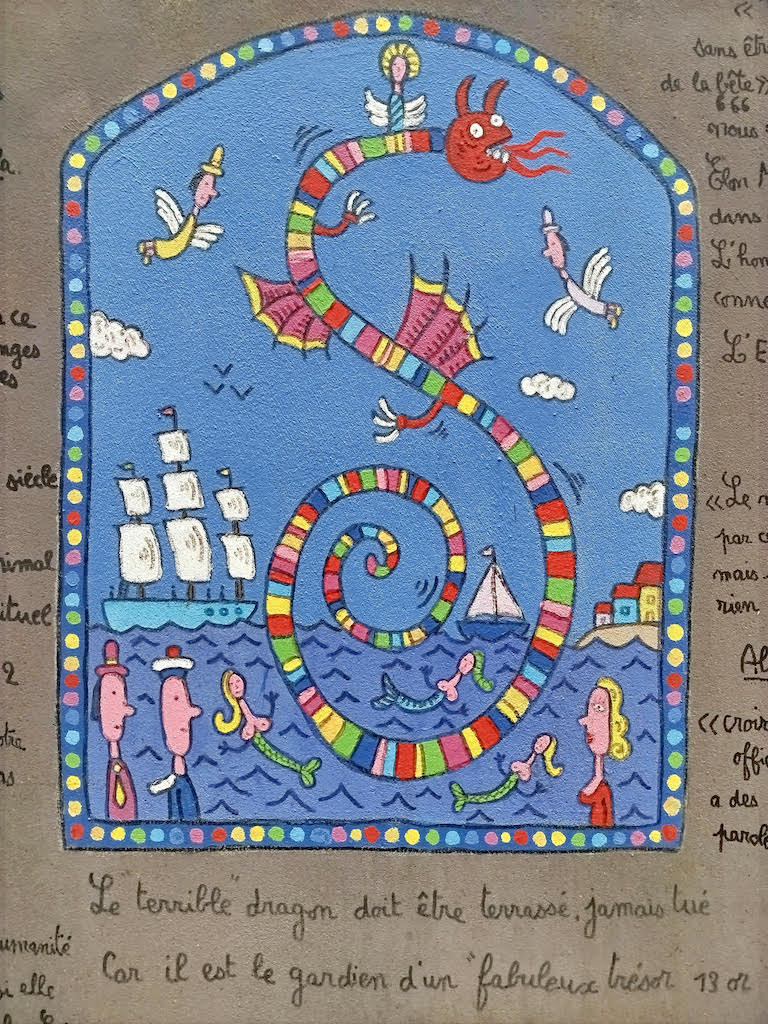 «
sans
de la bête»
666
nous
Elon
dans
L'hom
conne
L'E
siècle
nimal
ituel
2
«Le
par
mais
rien
Al
«croire
offi
a des
parole
Le "terrible" dragon doit être terrassé, jamais tué
Car il est le gardien d'un "fabuleux trésor 13 or
umanité
si elle